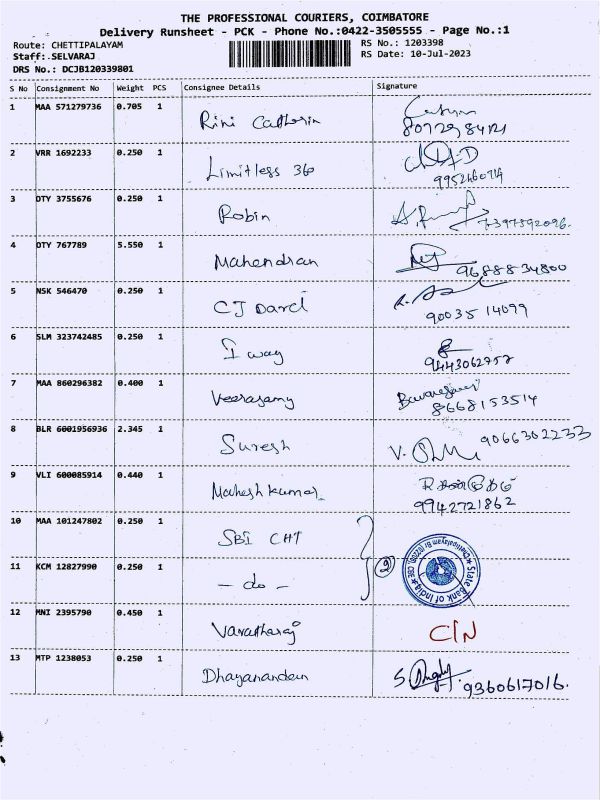 THE PROFESSIONAL COURIERS, COIMBATORE
Delivery Runsheet - PCK - Phone No.:0422-3505555 - Page No.:1
Route: CHETTIPALAYAM RS No.: 1203398
Staff: SELVARAJ RS Date: 10-Jul-2023
DRS No.: DCJB120339801
S No Consignment No Weight PCS Consignee Details Signature
1 MAA 571279736 0.705 1 Rini Catherin
2 VRR 1692233 0.250 1 Limitless 36
3 DTY 3755676 0.250 1 Robin 7397592096.
4 DTY 767789 5.550 1 Mahendran 9688834800
5 NSK 546470 0.250 1 CJ Darcl 9003514099
6 SLM 323742485 0.250 1 I way 9443062757
7 MAA 860296382 0.400 1 Veerasamy 8668153514
8 BLR 6001956936 2.345 1 Suresh 9066302233
9 VLI 600085914 0.440 1 Maheshkumar 9942721862
10 MAA 101247802 0.250 1 SBI CHT
11 KCM 12827990 0.250 1 - do - 2 State Bank of India
12 MNI 2395790 0.450 1 Varatharaj C/N
13 MTP 1238053 0.250 1 Dhayanandan 9360617016.